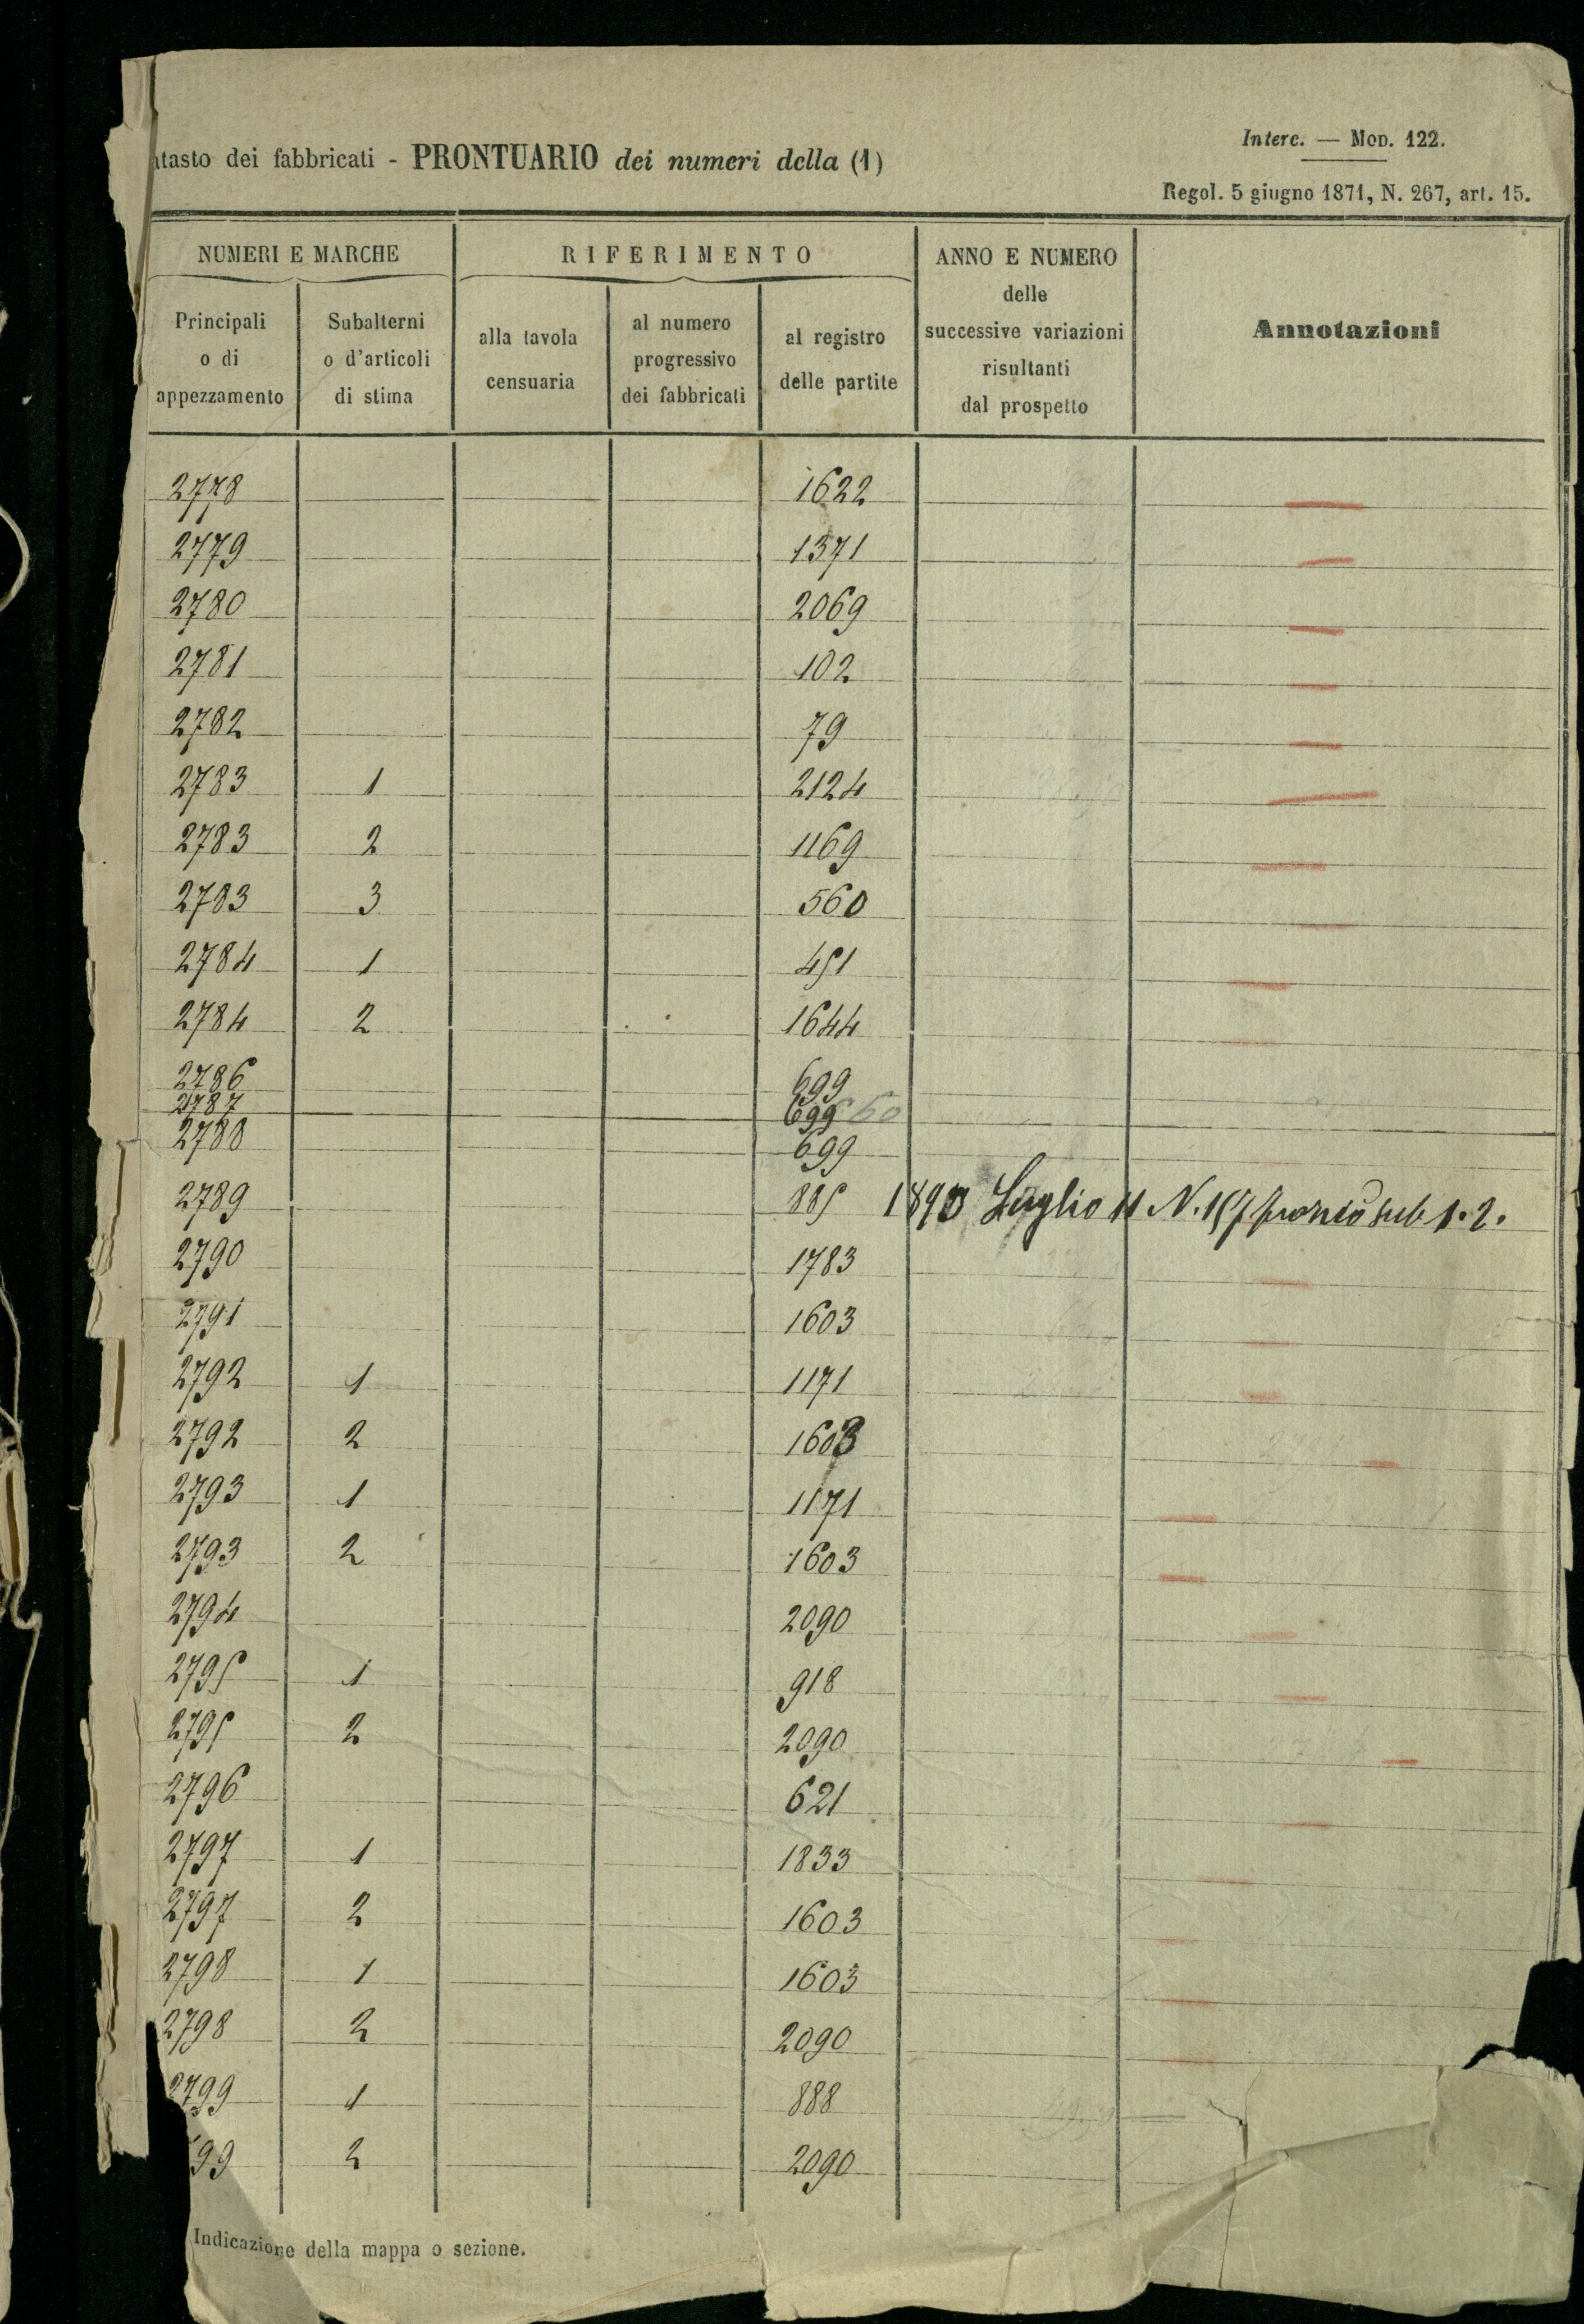 atasto dei fabbricati - PRONTUARIO dei numeri della (1)
Interc. — Mod. 122.
Regol. 5 giugno 1871, N. 267, art. 15.
NUMERI E MARCHE
RIFERIMENTO
ANNO E NUMERO
delle
successive variazioni
risultanti
dal prospetto
Annotazioni
Principali
o di
appezzamento
Subalterni
o d'articoli
di stima
alla tavola
censuaria
al numero
progressivo
dei fabbricati
al registro
delle partite
2778 1622
2779 1371
2780 2069
2781 102
2782 79
2783 1 2124
2783 2 1169
2783 3 560
2784 1 451
2784 2 1644
2786 699
2787 699
2788 699
2789 885 1890 Luglio 11 N. sub 1. 2.
2790 1783
2791 1603
2792 1 1171
2792 2 1603
2793 1 1171
2793 2 1603
2794 2090
2795 1 918
2795 2 2090
2796 621
2797 1 1833
2797 2 1603
2798 1 1603
2798 2 2090
2799 1 888
99 2 2090
Indicazione della mappa o sezione.